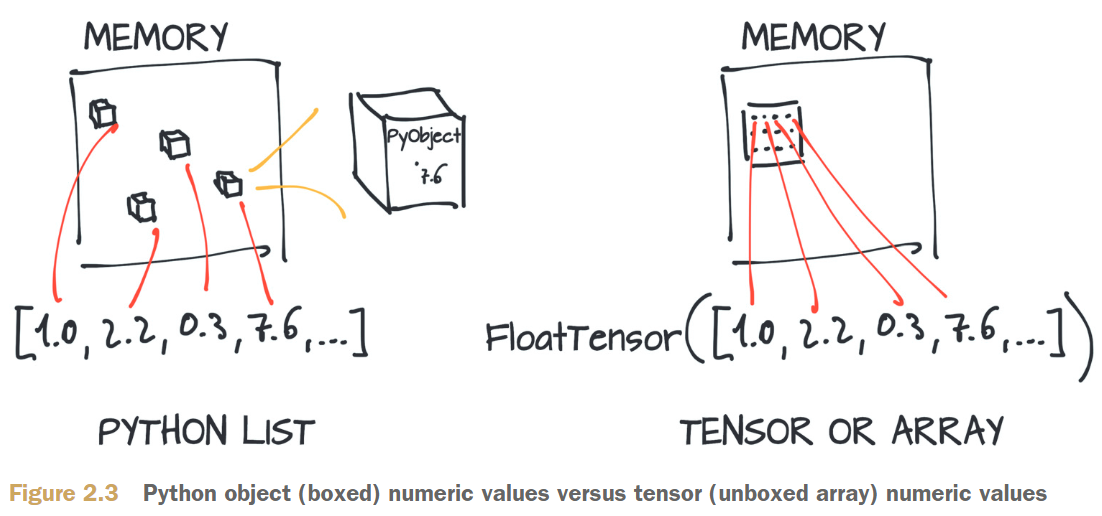 MEMORY
PyObject
7.6
[1.0, 2.2, 0.3, 7.6, ...]
PYTHON LIST
MEMORY
FloatTensor([1.0, 2.2, 0.3, 7.6, ...])
TENSOR OR ARRAY
Figure 2.3 Python object (boxed) numeric values versus tensor (unboxed array) numeric values